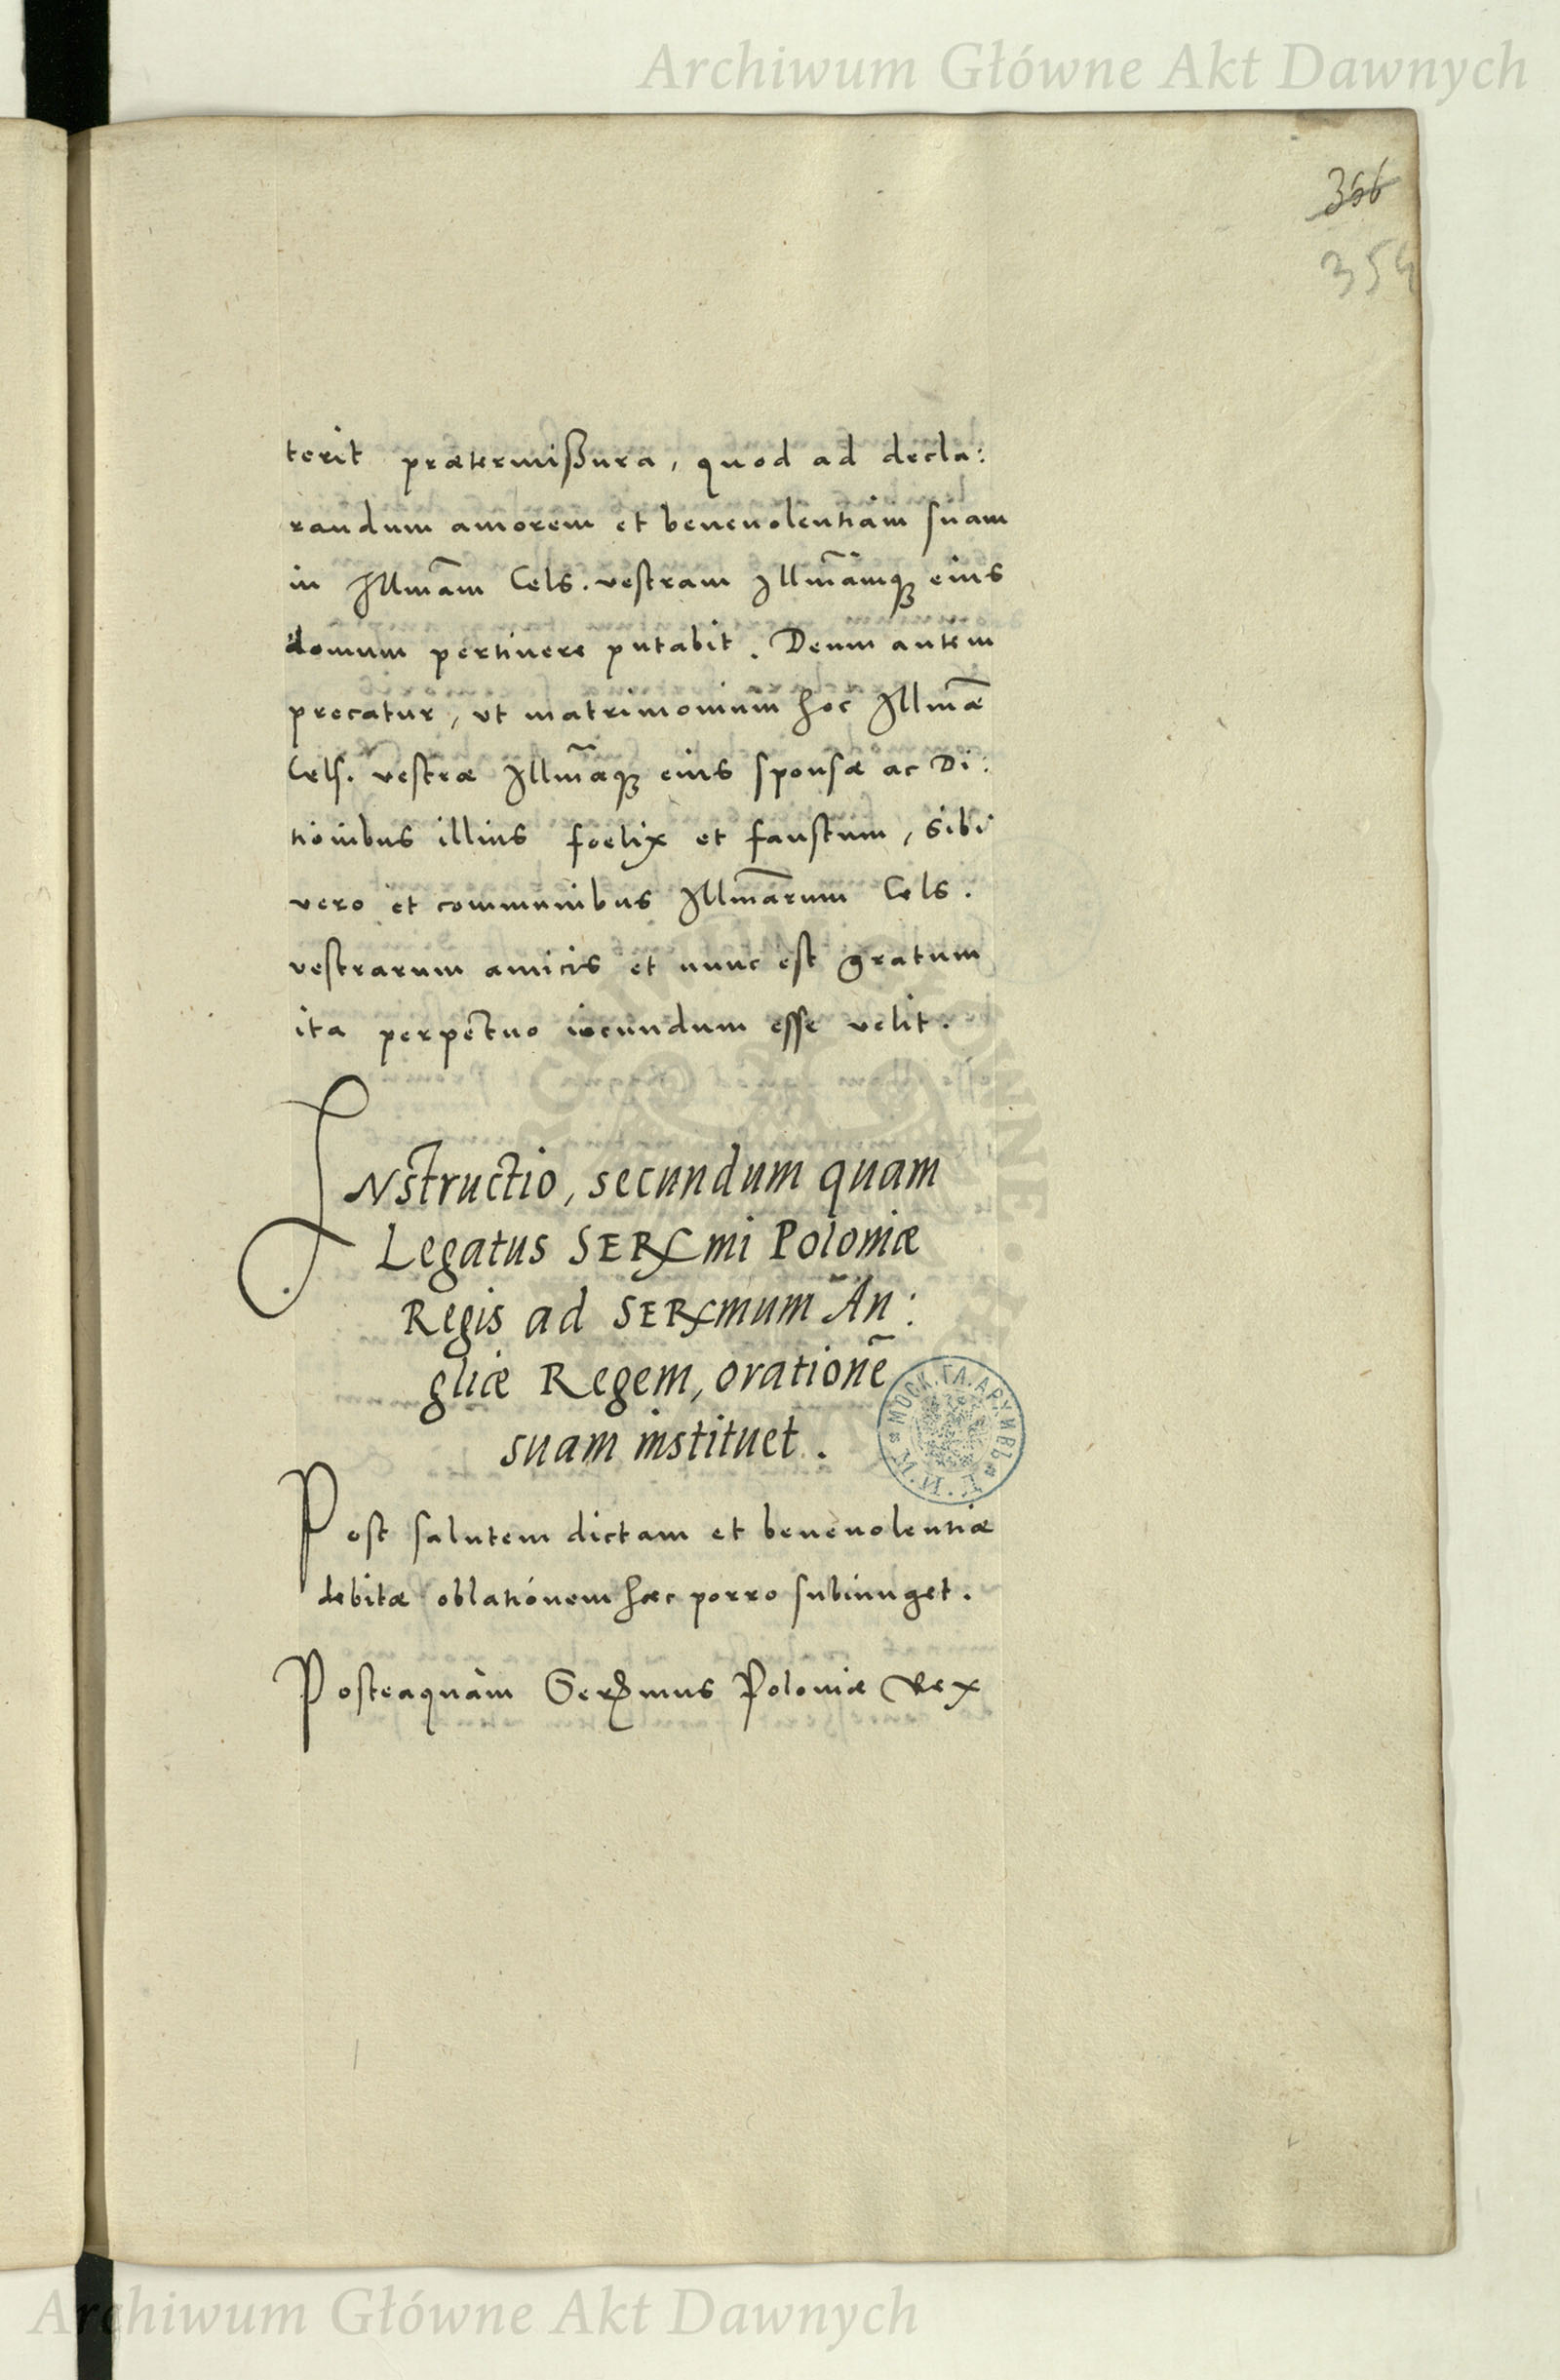 Archiwum Główne Akt Dawnych
366
354
terit prætermißura, quod ad decla:
randum amorem et beneuolentiam suam
in Illmam Cels. vestram Illmamq3 eius
domum pertinere putabit. Deum autem
precatur, vt matrimonium hoc Illmæ
Cels. vestræ Illmæq3 eius sponsæ ac Di:
tionibus illius foelix et faustum, sibi
vero et communibus Illmarum Cels.
vestrarum amicis et nunc est gratum
ita perpetuo iocundum esse velit.
INstructio, secundum quam
Legatus SERmi Poloniæ
Regis ad SERmum An:
gliæ Regem, orationē
suam instituet.
Post salutem dictam et beneuolentiæ
debitæ oblationem hæc porro subiunget.
Posteaquàm Sermus Poloniæ Rex
МОСК. ГЛ. АРХИВЪ
Archiwum Główne Akt Dawnych